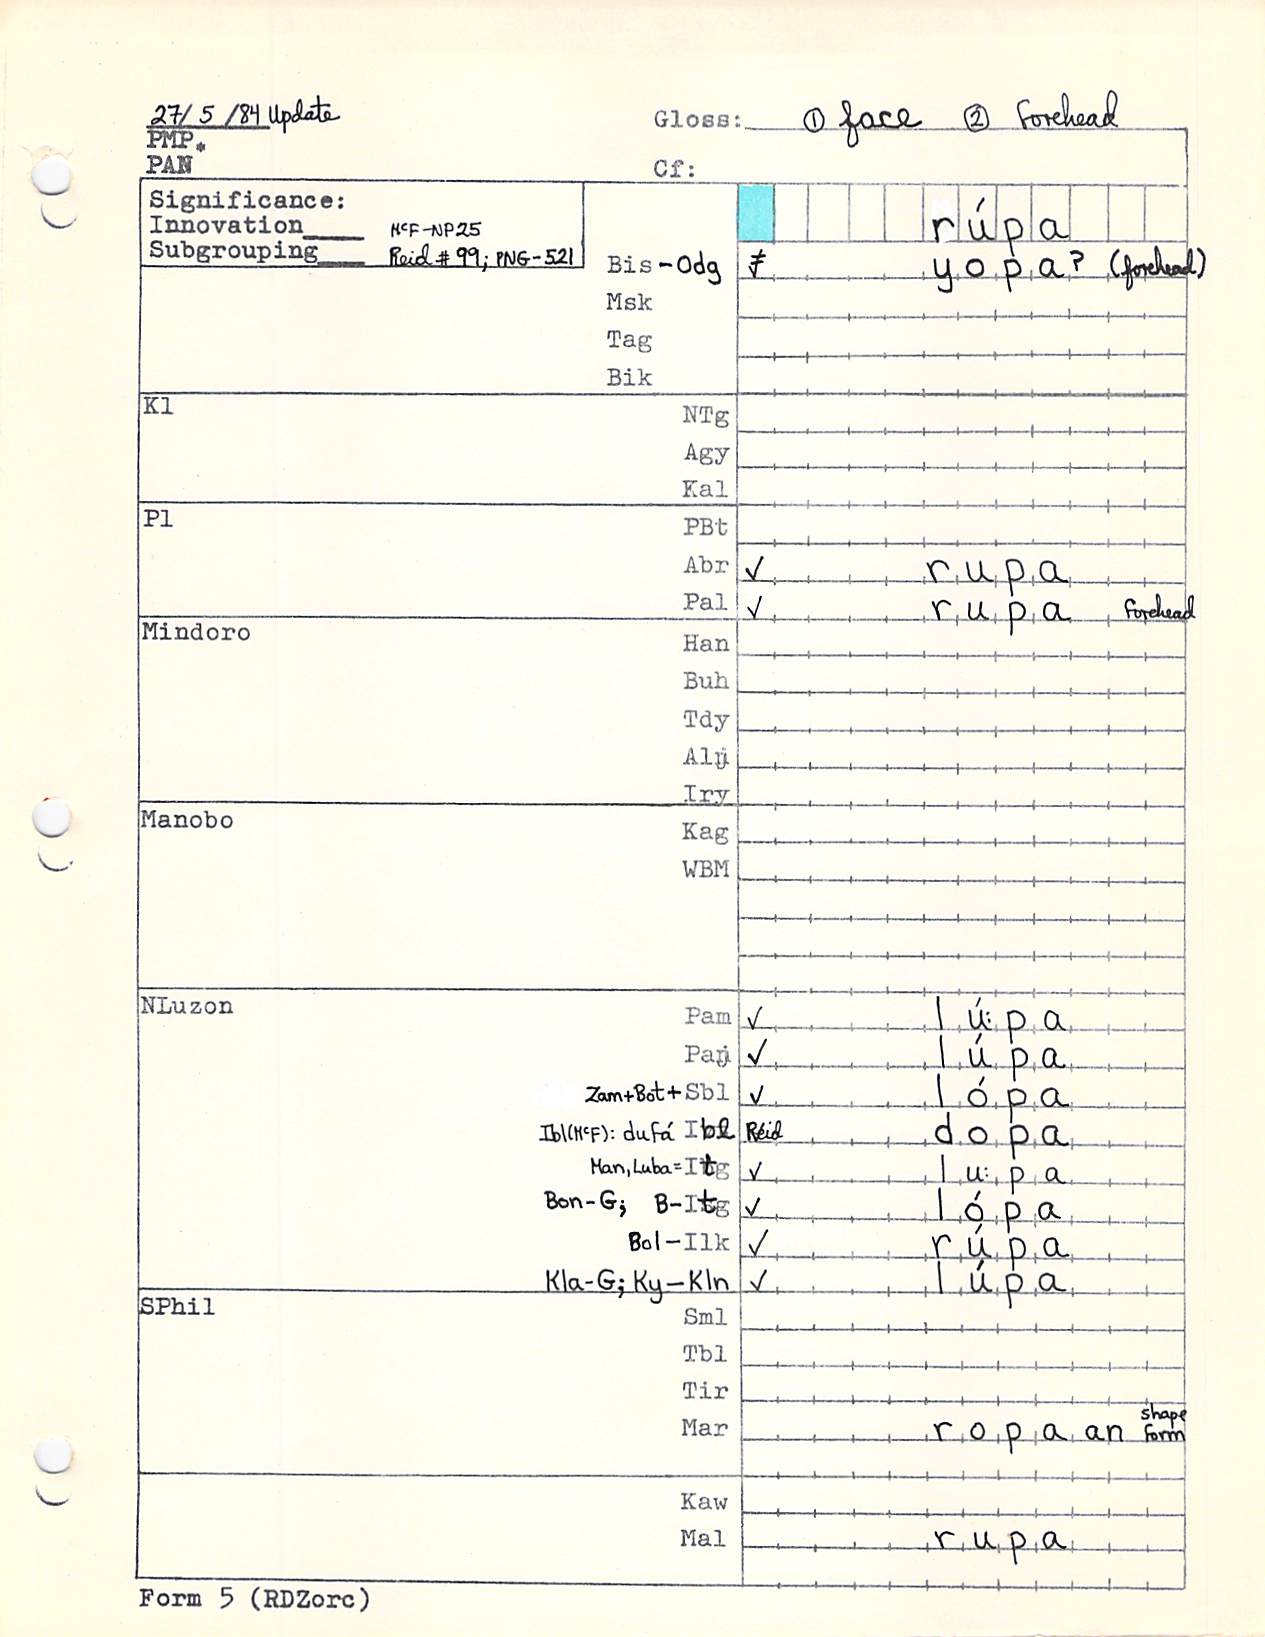 27/5/84 Update
Gloss: ① face ② forehead
PMP*
PAN
Cf:
Significance:
Innovation____ McF-NP25
Subgrouping____ Reid #99; PNG-521
rúpa
Bis-Odg ≠ yopaʔ (forehead)
Msk
Tag
Bik
Kl
NTg
Agy
Kal
Pl
PBt
Abr ✓ rupa
Pal ✓ rupa forehead
Mindoro
Han
Buh
Tdy
Alŋ
Iry
Manobo
Kag
WBM
NLuzon
Pam ✓ lú:pa
Paŋ ✓ lúpa
Zam+Bot+Sbl ✓ lópa
Ibl(McF): dufá Ibl Reid dopa
Man, Luba=Itg ✓ lu:pa
Bon-G; B-Itg ✓ lópa
Bol-Ilk ✓ rúpa
Kla-G; Ky-Kln ✓ lúpa
SPhil
Sml
Tbl
Tir
Mar ropaan shape form
Kaw
Mal rupa
Form 5 (RDZorc)